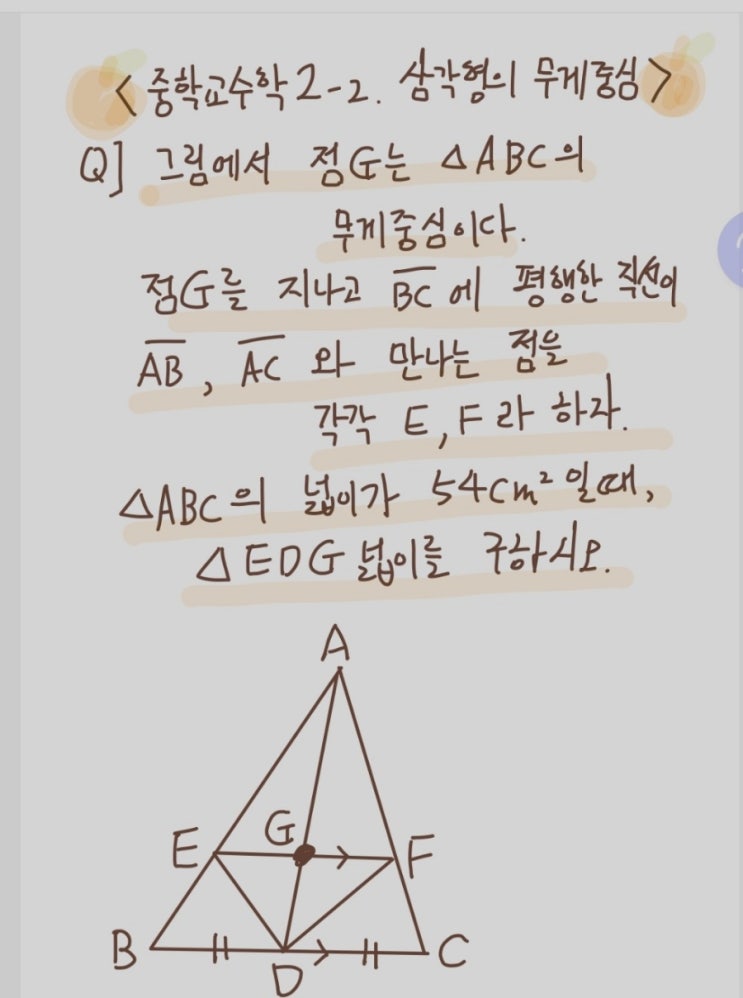 <중학교수학2-2. 삼각형의 무게중심>
Q] 그림에서 점G는 △ABC의
무게중심이다.
점G를 지나고 BC에 평행한 직선이
AB, AC와 만나는 점을
각각 E, F라 하자.
△ABC의 넓이가 54cm²일때,
△EDG 넓이를 구하시오.
A
E G F
B D C